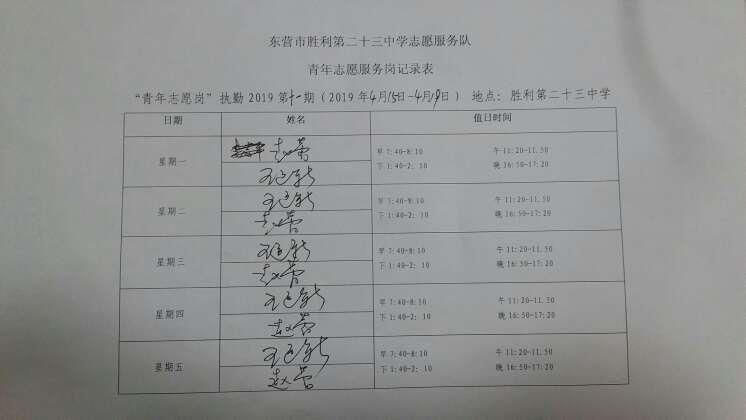 东营市胜利第二十三中学志愿服务队
青年志愿服务岗记录表
“青年志愿岗”执勤 2019 第十一期（2019 年4月15日-4月19日） 地点：胜利第二十三中学
日期 姓名 值日时间
星期一 赵蕾 早 7:40-8:10 午 11:20-11.50
下 1:40-2：10 晚 16:50-17:20
星期二 早 7:40-8:10 午 11:20-11.50
赵蕾 下 1:40-2：10 晚 16:50-17:20
星期三 早 7:40-8:10 午 11:20-11.50
赵蕾 下 1:40-2：10 晚 16:50-17:20
星期四 早 7:40-8:10 午 11:20-11.50
赵蕾 下 1:40-2：10 晚 16:50-17:20
星期五 早 7:40-8:10 午 11:20-11.50
赵蕾 下 1:40-2：10 晚 16:50-17:20